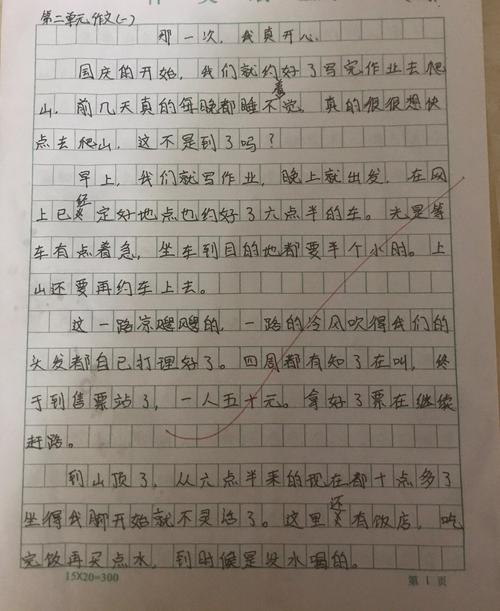 第二单元作文(一)
那一次，我真开心
国庆的开始，我们就约好了写完作业去爬
山，前几天真的每晚都睡不着觉，真的很很想快
点去爬山，这不是到了吗？
早上，我们就写作业，晚上就出发，在网
上已经定好地点也约好了六点半的车。光是等
车有点着急，坐车到目的地都要半个小时。上
山还要再约车上去。
这一路凉嗖嗖的，一路的冷风吹得我们的
头发都自己打理好了。四周都有知了在叫，终
于到售票站了，一人五十元。拿好了票在继续
赶路。
到山顶了，从六点半来的现在都十点多了
坐得我脚开始就不灵活了。这里还有饭店，吃
完饭再买点水，到时候是没水喝的。
15×20=300
第1页